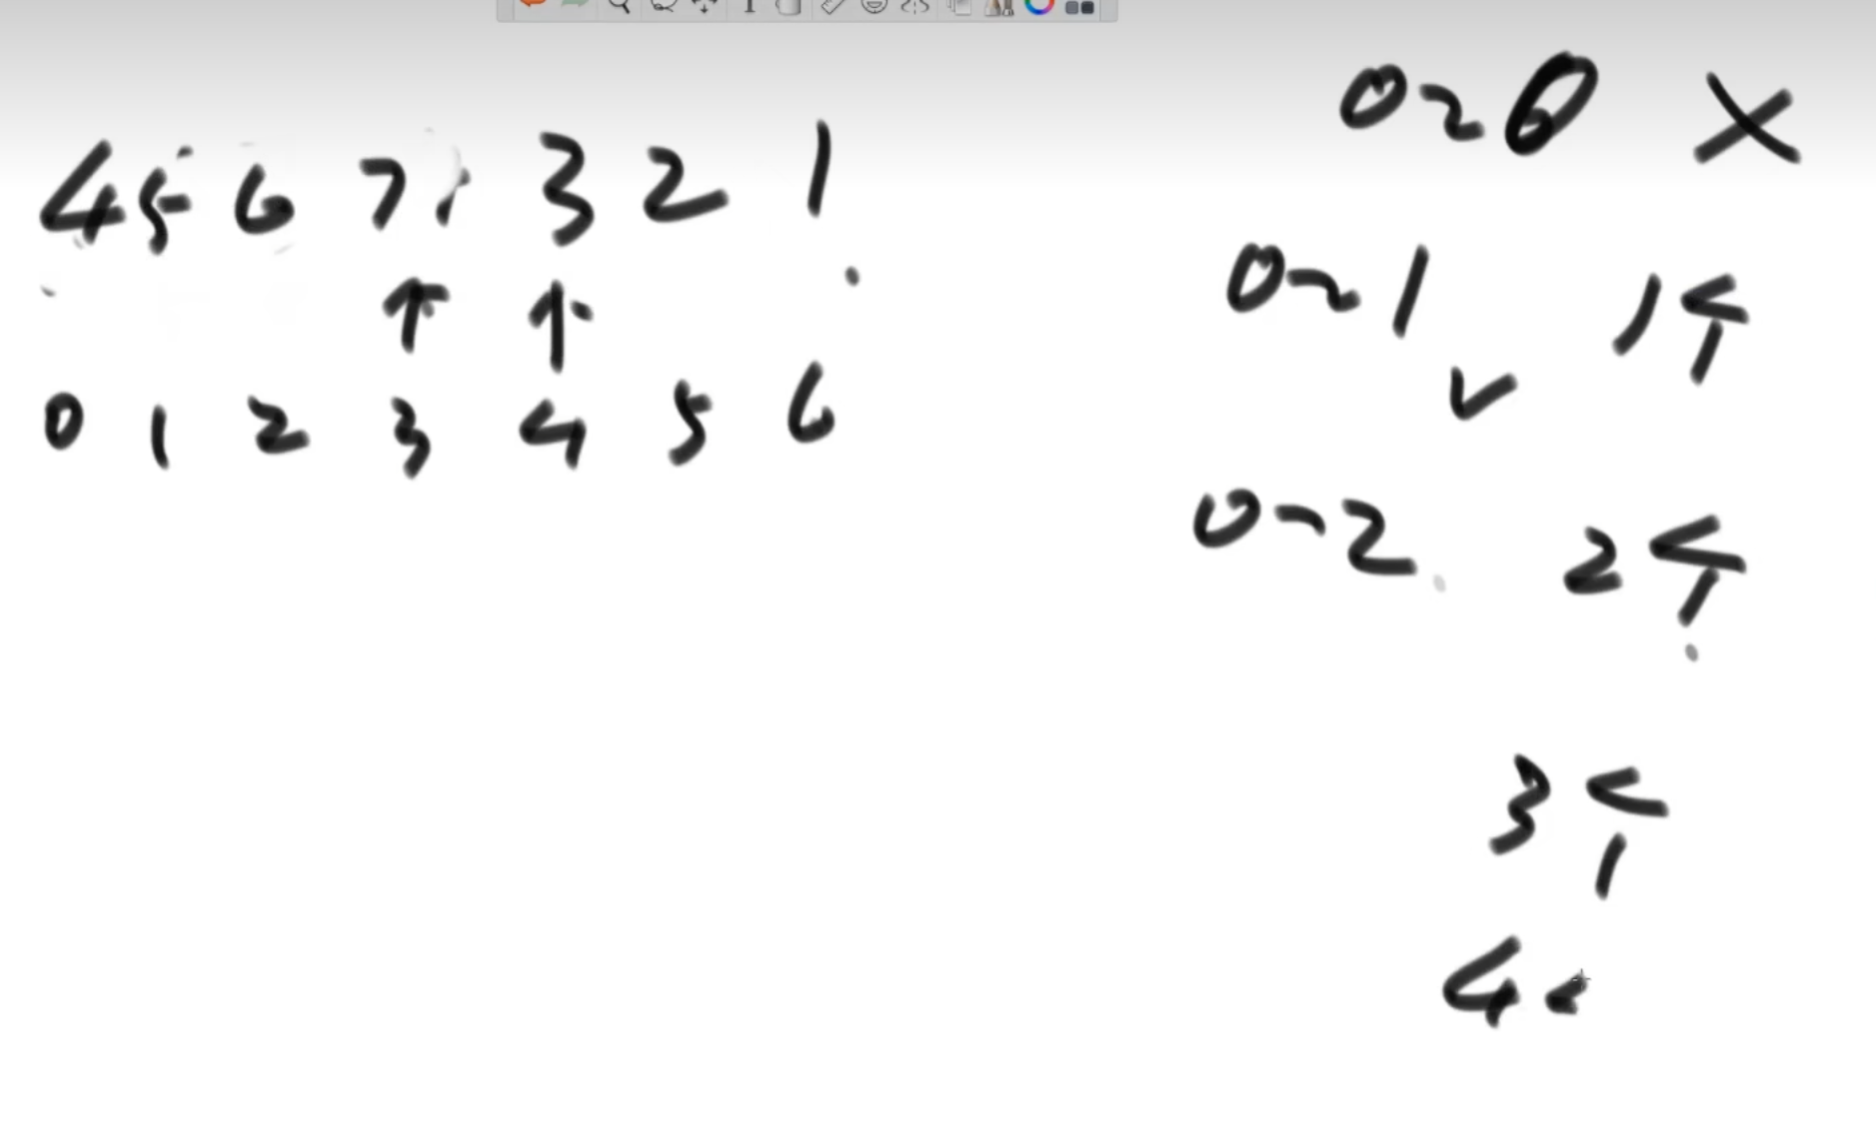 4 5 6 7 3 2 1
0 1 2 3 4 5 6
0~0 ×
0~1 ✓ 1个
0~2 2个
3个
4